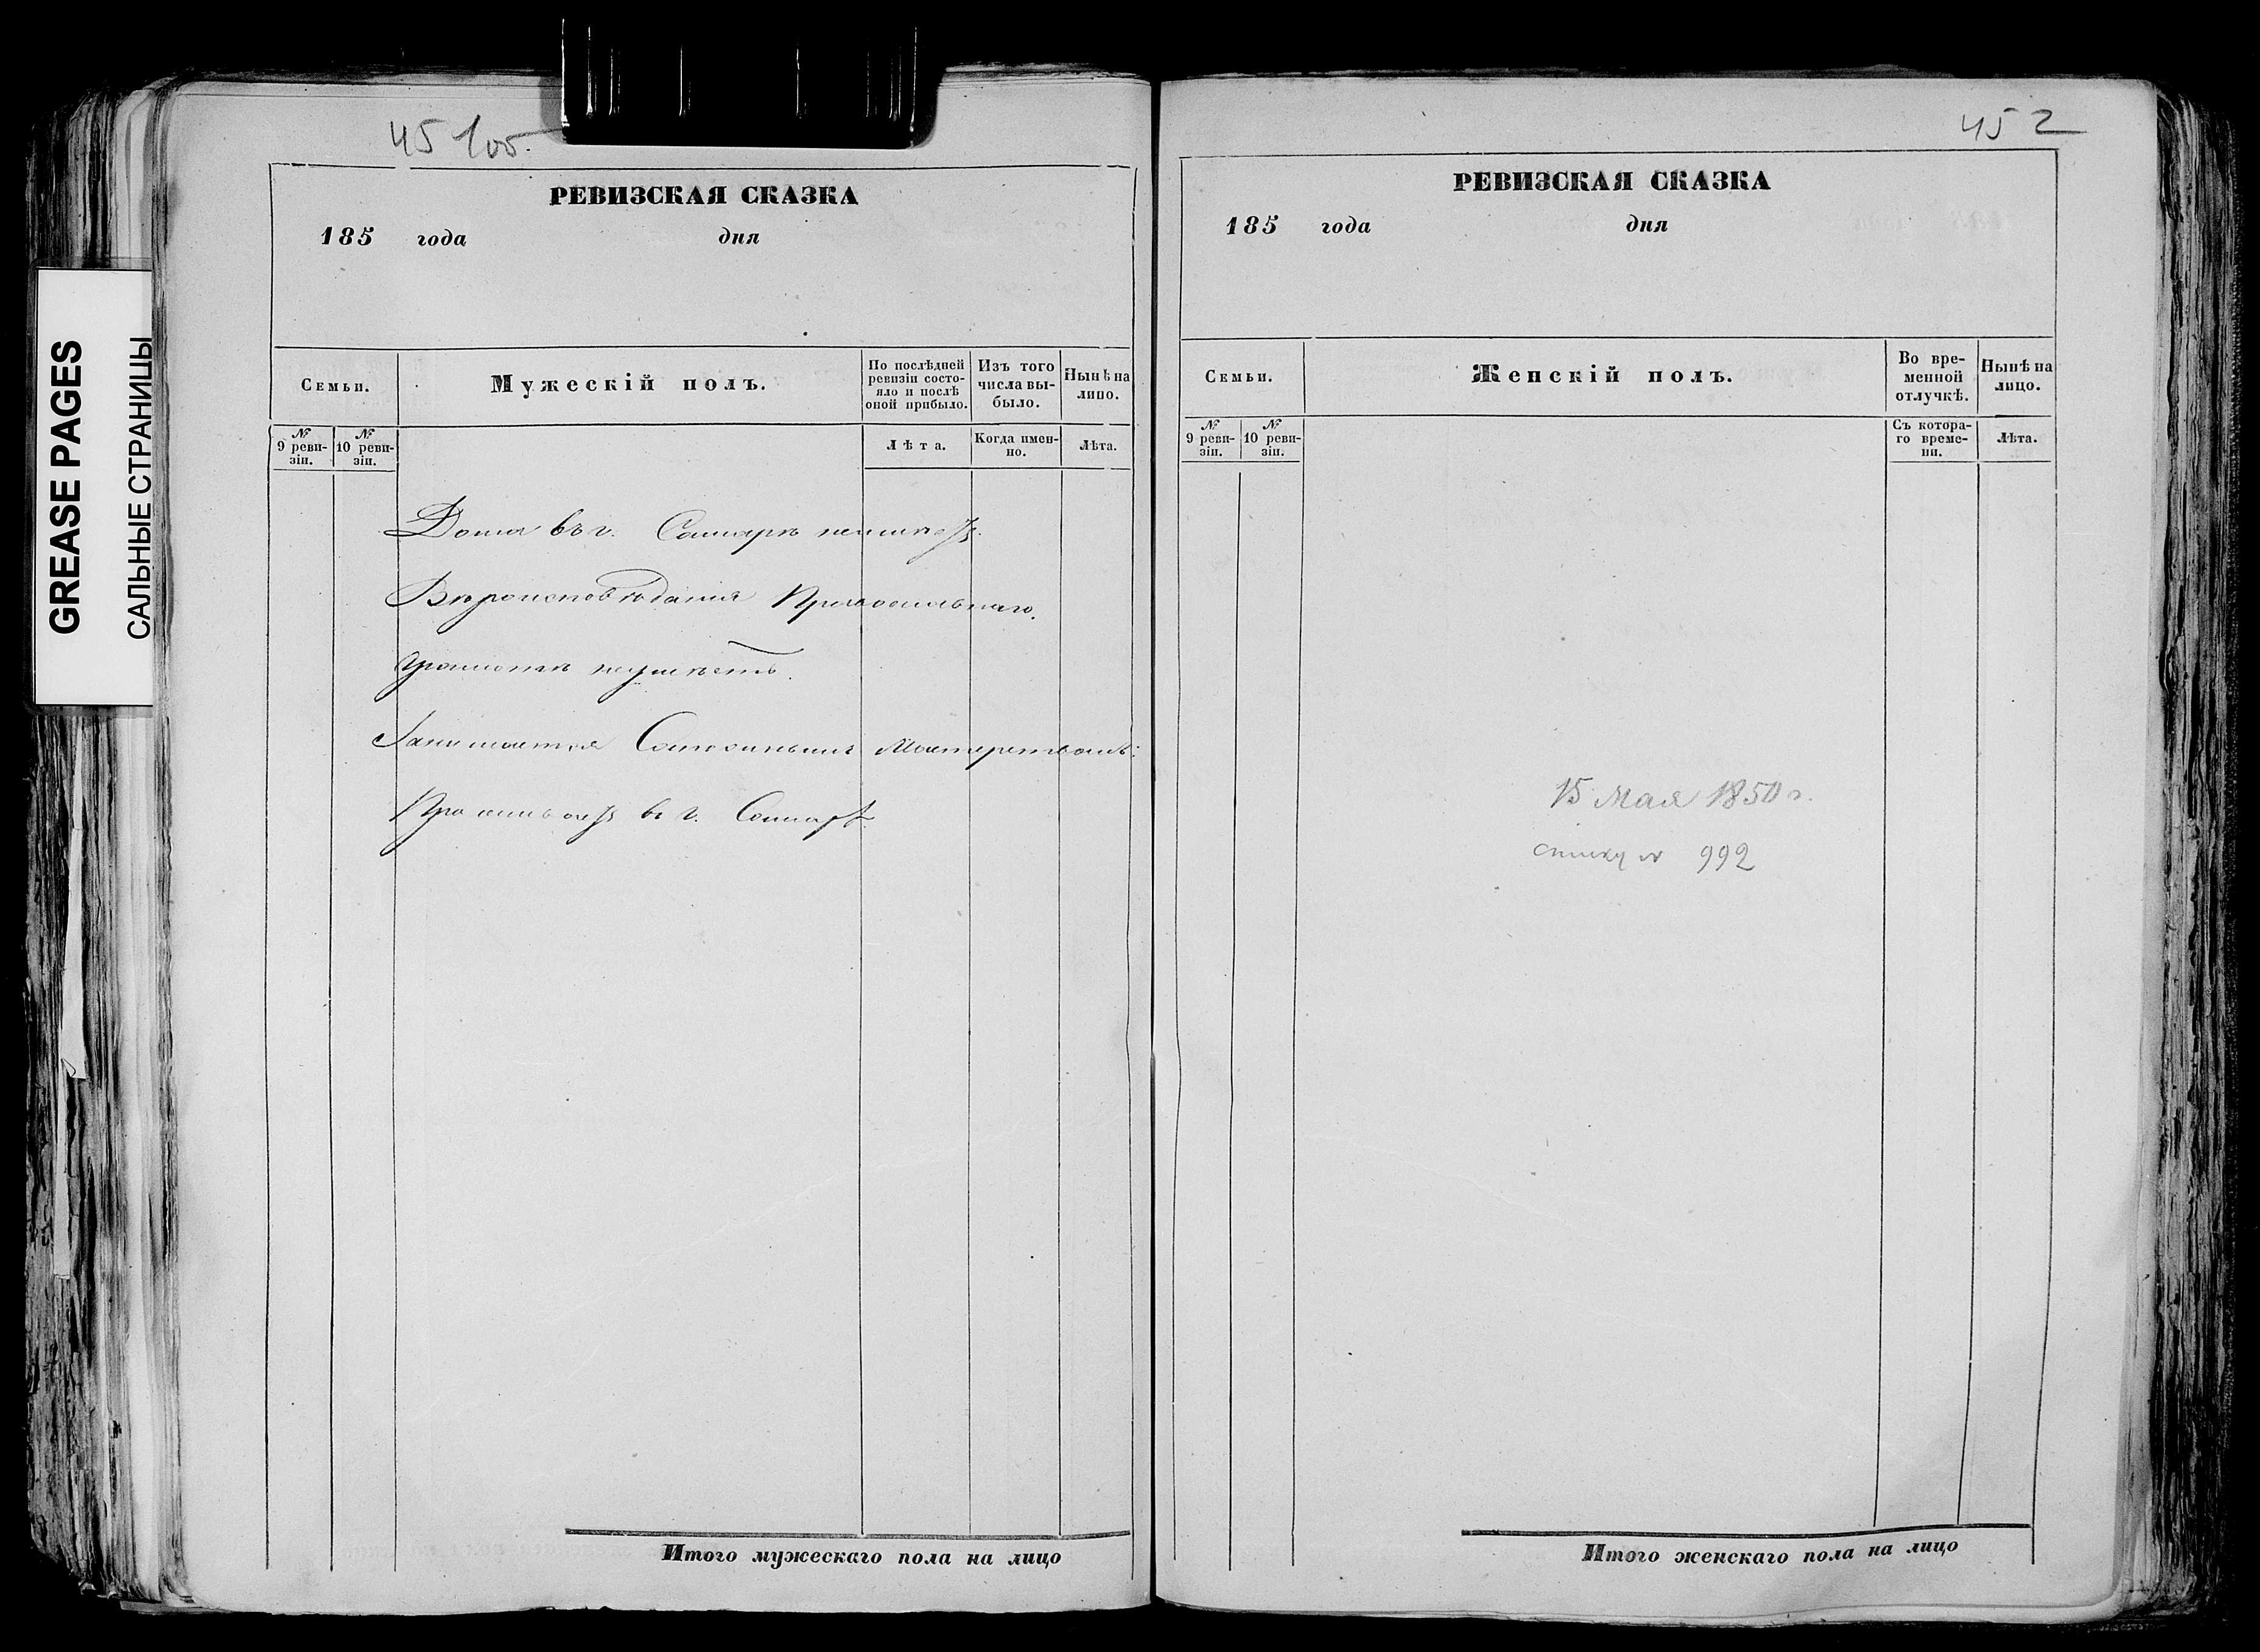 GREASE PAGES
САЛЬНЫЕ СТРАНИЦЫ
45 105.
РЕВИЗСКАЯ СКАЗКА
185 года дня
Семьи.
Мужескій полъ.
По послѣдней ревизіи состояло и послѣ оной прибыло.
Изъ того числа выбыло.
Нынѣ на лицо.
№ 9 ревизіи.
№ 10 ревизіи.
Лѣта.
Когда именно.
Лѣта.
Дома въ г. Самарѣ неимѣетъ.
Вѣроисповѣданія Православнаго.
Грамотѣ неумѣетъ.
Занимается Сапожнымъ Мастерствомъ.
Проживаетъ въ г. Самарѣ.
Итого мужескаго пола на лицо
45 2
РЕВИЗСКАЯ СКАЗКА
185 года дня
Семьи.
Женскій полъ.
Во временной отлучкѣ.
Нынѣ на лицо.
№ 9 ревизіи.
№ 10 ревизіи.
Съ котораго времени.
Лѣта.
15 Мая 1850 г.
992
Итого женскаго пола на лицо